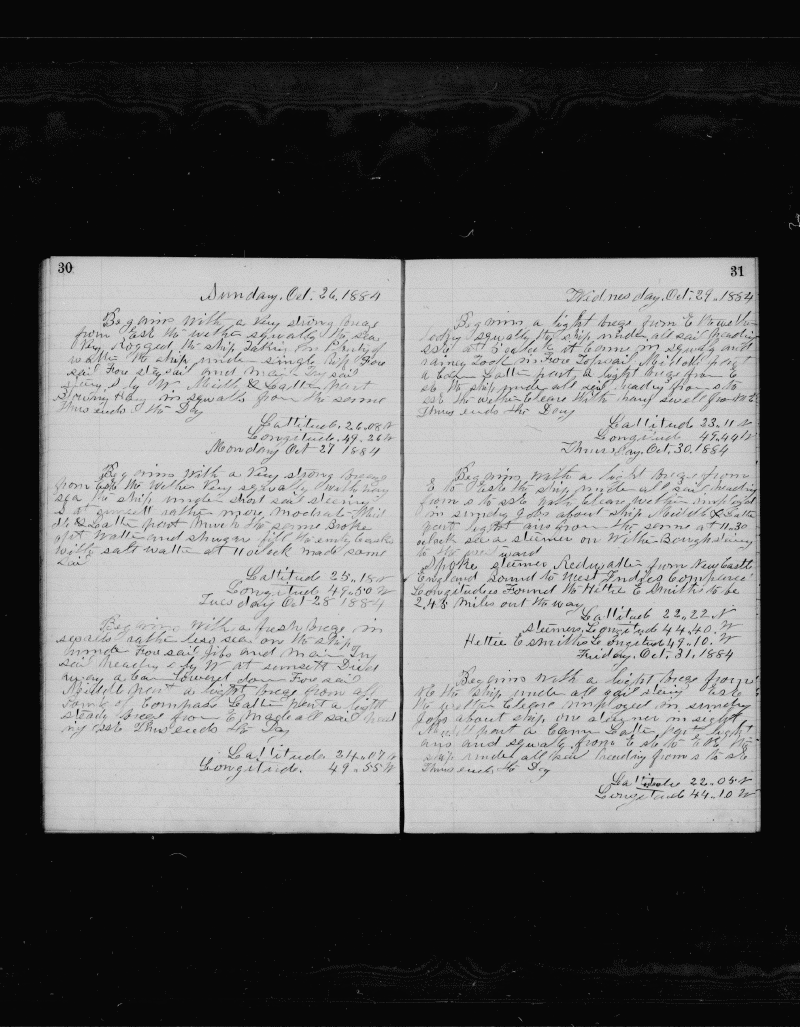 30
Sunday, Oct. 26, 1884
Begains with a Very strong breze
from East the wether squally the sea
Very Rogged the ship Taking in Plenty of
watter the ship under single rift Fore
sail Fore stay sail and main Try sail
S by W Middle & Latter part
Blowing Heavy in squalls from the same
Thus ends the Day
Lattitude. 26.08 N
Longitude. 49.26 W
Monday Oct 27 1884
Begains with a Very strong breeze
from East the wether Very squally with heavy
sea the ship under short sail steering
S at sunsett rather more moderate Mid
dle & Latter part much the same Broke
out watter and shugar fill the empty casks
with salt watter at 11 oclock made some
sail
Lattitude 25.18 N
Longitude 49.50 W
Tuesday Oct 28 1884
Begains with a fresh breze in
squalls rather less sea on the ship
under Fore sail Jibs and main Try
sail heading S by W at sunsett Died
away a cam Lowered down Fore sail
Middle part a light breze from all
Points of Compass Latter part a light
steady breze from E made all sail head
ing SSE Thus ends the Day
Lattitude 24.07 N
Longitude. 49.55 W
31
Wednesday, Oct. 29. 1884
Begains a light breze from E the wether
squally the ship under all sail heading
SSE at 5 oclock it came in squaly and
rainey Took in Fore Topsail Middle part
a Cam Latter part a light breze from E
SE the ship under all sail heading from S to
SSE the wether Cleare with heavy swell from
Thus ends the Day
Lattitude 23.11 N
Longitude 49.44 W
Thursday, Oct. 30, 1884
Begains with a light breze from
E to ESE the ship under all sail heading
from S to SSE Cleare wether employed
in sundry Jobs about ship Middle & Latter
part light airs from the same at 11.30
oclock saw a steamer on Wether Bough steering
to the westward
Spoke steamer Redwatter from New Castle
England bound to West Indies compared
Longitudes Found the Hettie E Smith to be
245 miles out the way
Lattitude 22.22 N
steamers Longitude 44.40. W
Hettie E smiths Longitude 49.10. W
Friday, Oct. 31, 1884
Begains with a light breze from
the ship under all sail steering
the wether Cleare employed in sundry
Jobs about ship one steamer in sight
Middle part a Camm Latter part light
airs and squaly from E SE to the
ship under all sail heading from S to SE
Thus ends the Day
Lattitude 22.05 N
Longitude 44.10 W